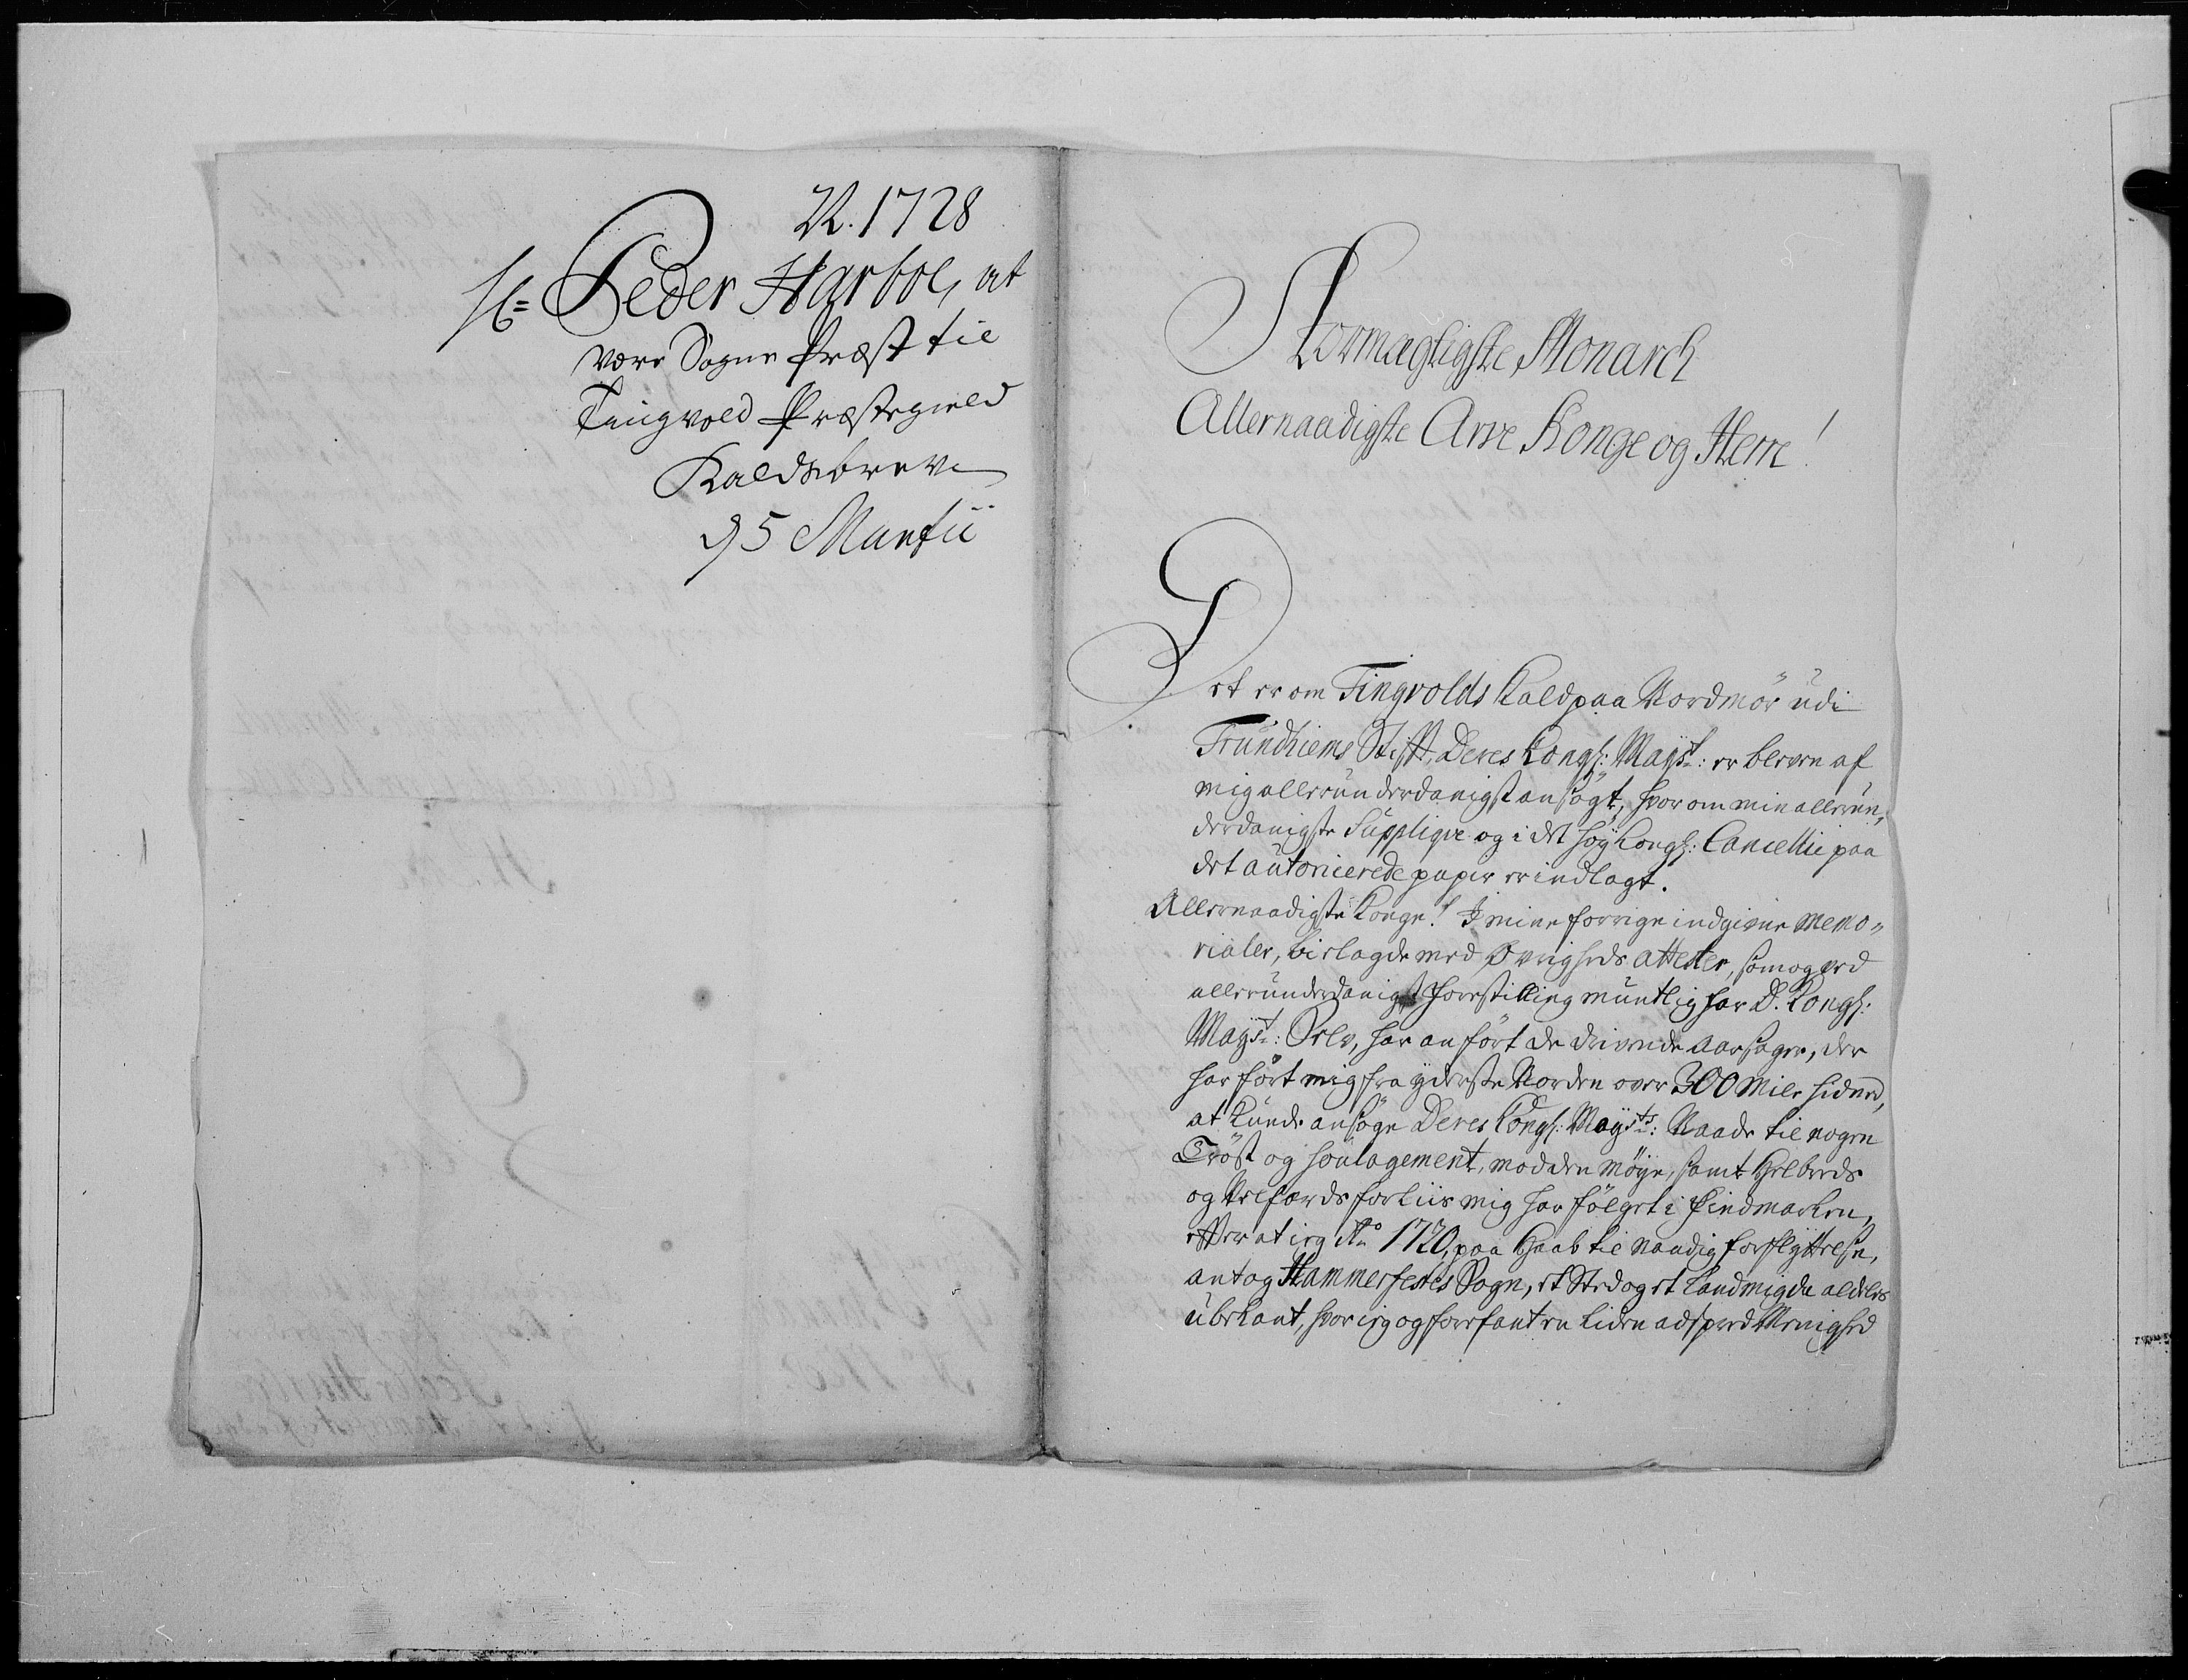 R. 1728
H= Peder Harboe, at
være Sogne Præst til
Tingvold Præstegield
Kaldsbrev
d 5 Martii
Stormægtigste Monarch
Allernaadigste Arve Konge og Herre!
Det er om Tingvolds Kald paa Nordmör udi
Trundhiems Stift, Deres Kongl: Mayst: er bleven af
mig allerunderdanigst ansögt, hvorom min allerun,
derdanigste Supplique og i det höy Kongl: Cancellie paa
det autoricerede papir er indlagt.
Allernaadigste Konge! I mine forrige indgivne memo„
rialer, bielagde med Øvrigheds attester, som og ved
allerunderdanigst forestilling muntlig for D. Kongl:
Mayst: Selv, har anfört de drivende Aarsager, der
har fört mig fra yderste Norden over 300 Mile hidned,
at kunde ansöge Deres Kongl: Maysts: Naade til nogen
Tröst og soulagement, mod den möye, samt Helbreds
og Velfærds forliis mig har fölget i Findmarken,
efter at ieg Ao 1720, paa Haab til naadig forflyttelse,
antog Hammerfestes Sogn, et Sted og et Land mig da aldeles
ubekant, hvor ieg og forefant en liden adspred Menighed